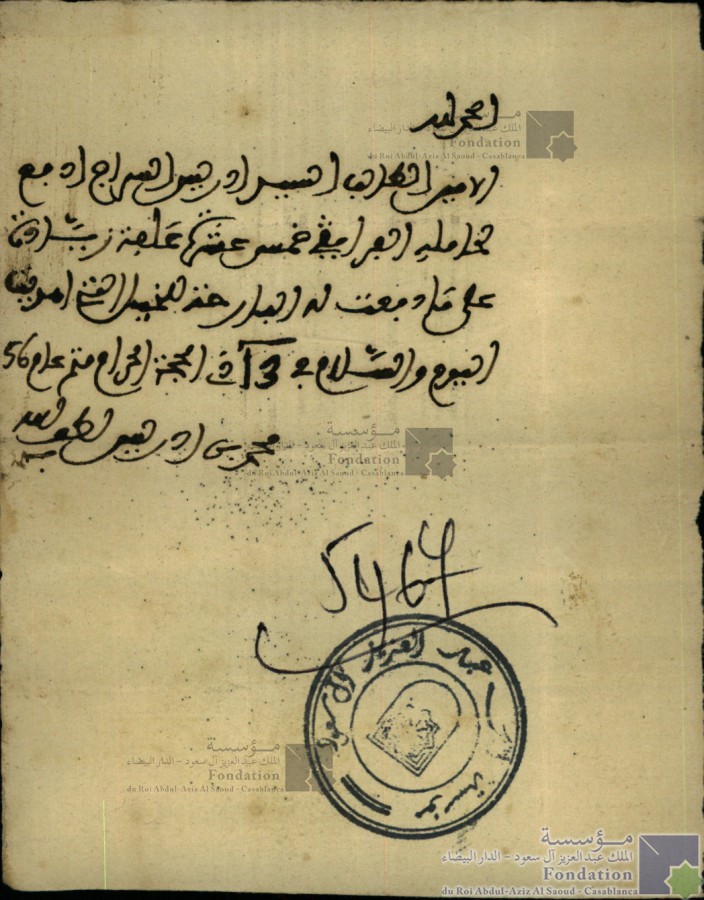 الحمد لله
الامين الطالب السيد ادريس السراج ادفع
لحامله العرايشي خمس عشرة علفة زيادة
على ما دفعت له البارحة للخيل التي
اليوم والسلام في 13 الحجة الحرام متم عام 56
محمد بن ادريس لطف الله به
5464
مؤسسة الملك عبد العزيز آل سعود
مؤسسة
الملك عبد العزيز آل سعود - الدار البيضاء
Fondation
du Roi Abdul-Aziz Al Saoud - Casablanca
مؤسسة
الملك عبد العزيز آل سعود - الدار البيضاء
Fondation
du Roi Abdul-Aziz Al Saoud - Casablanca
مؤسسة
الملك عبد العزيز آل سعود - الدار البيضاء
Fondation
du Roi Abdul-Aziz Al Saoud - Casablanca
مؤسسة
الملك عبد العزيز آل سعود - الدار البيضاء
Fondation
du Roi Abdul-Aziz Al Saoud - Casablanca